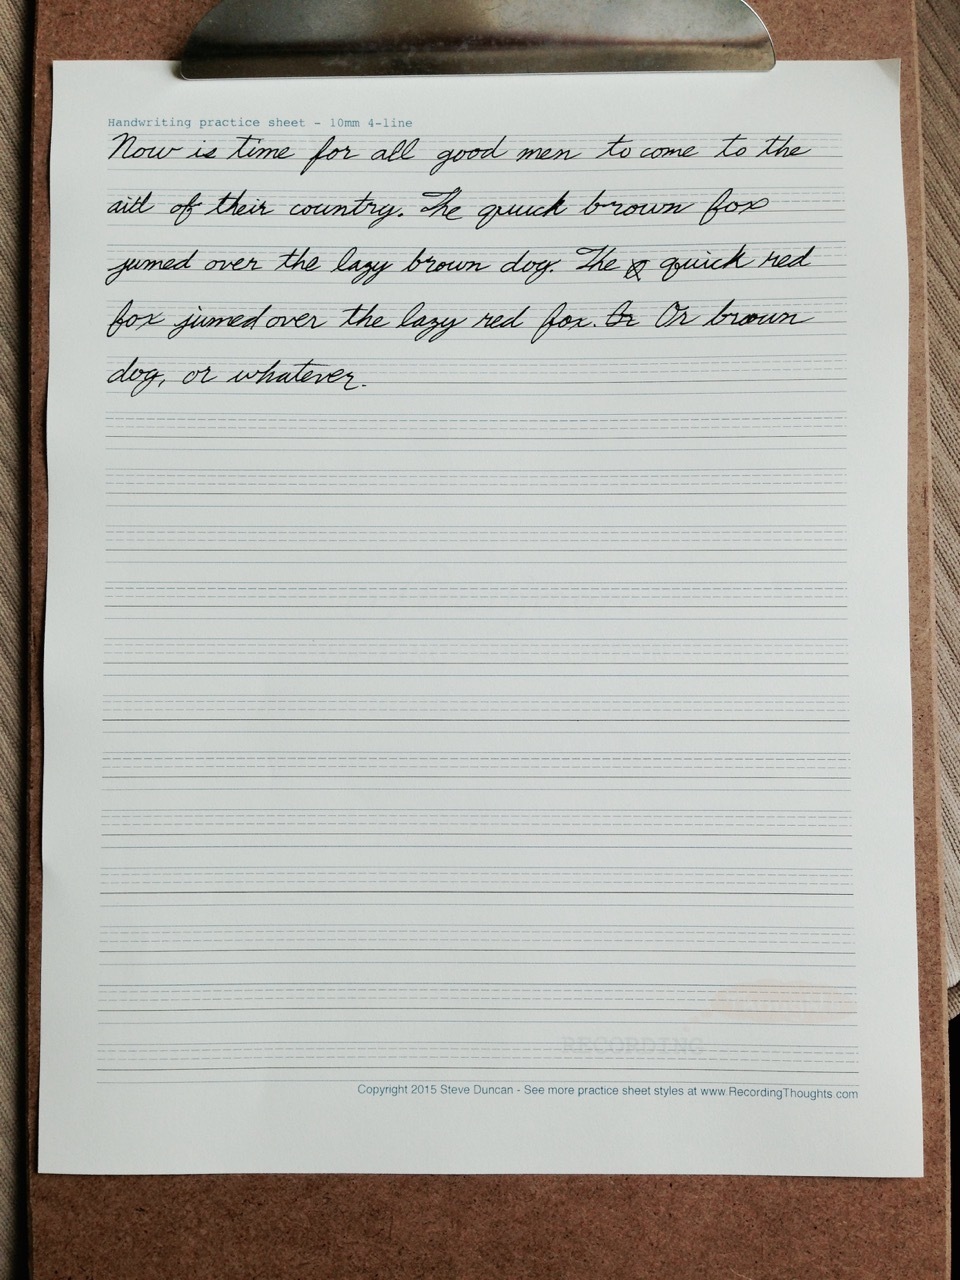 Handwriting practice sheet - 10mm 4-line
Now is time for all good men to come to the
aid of their country. The quick brown fox
jumed over the lazy brown dog. The quick red
fox jumed over the lazy red fox. Or Or brown
dog, or whatever.
RECORDING
Copyright 2015 Steve Duncan - See more practice sheet styles at www.RecordingThoughts.com